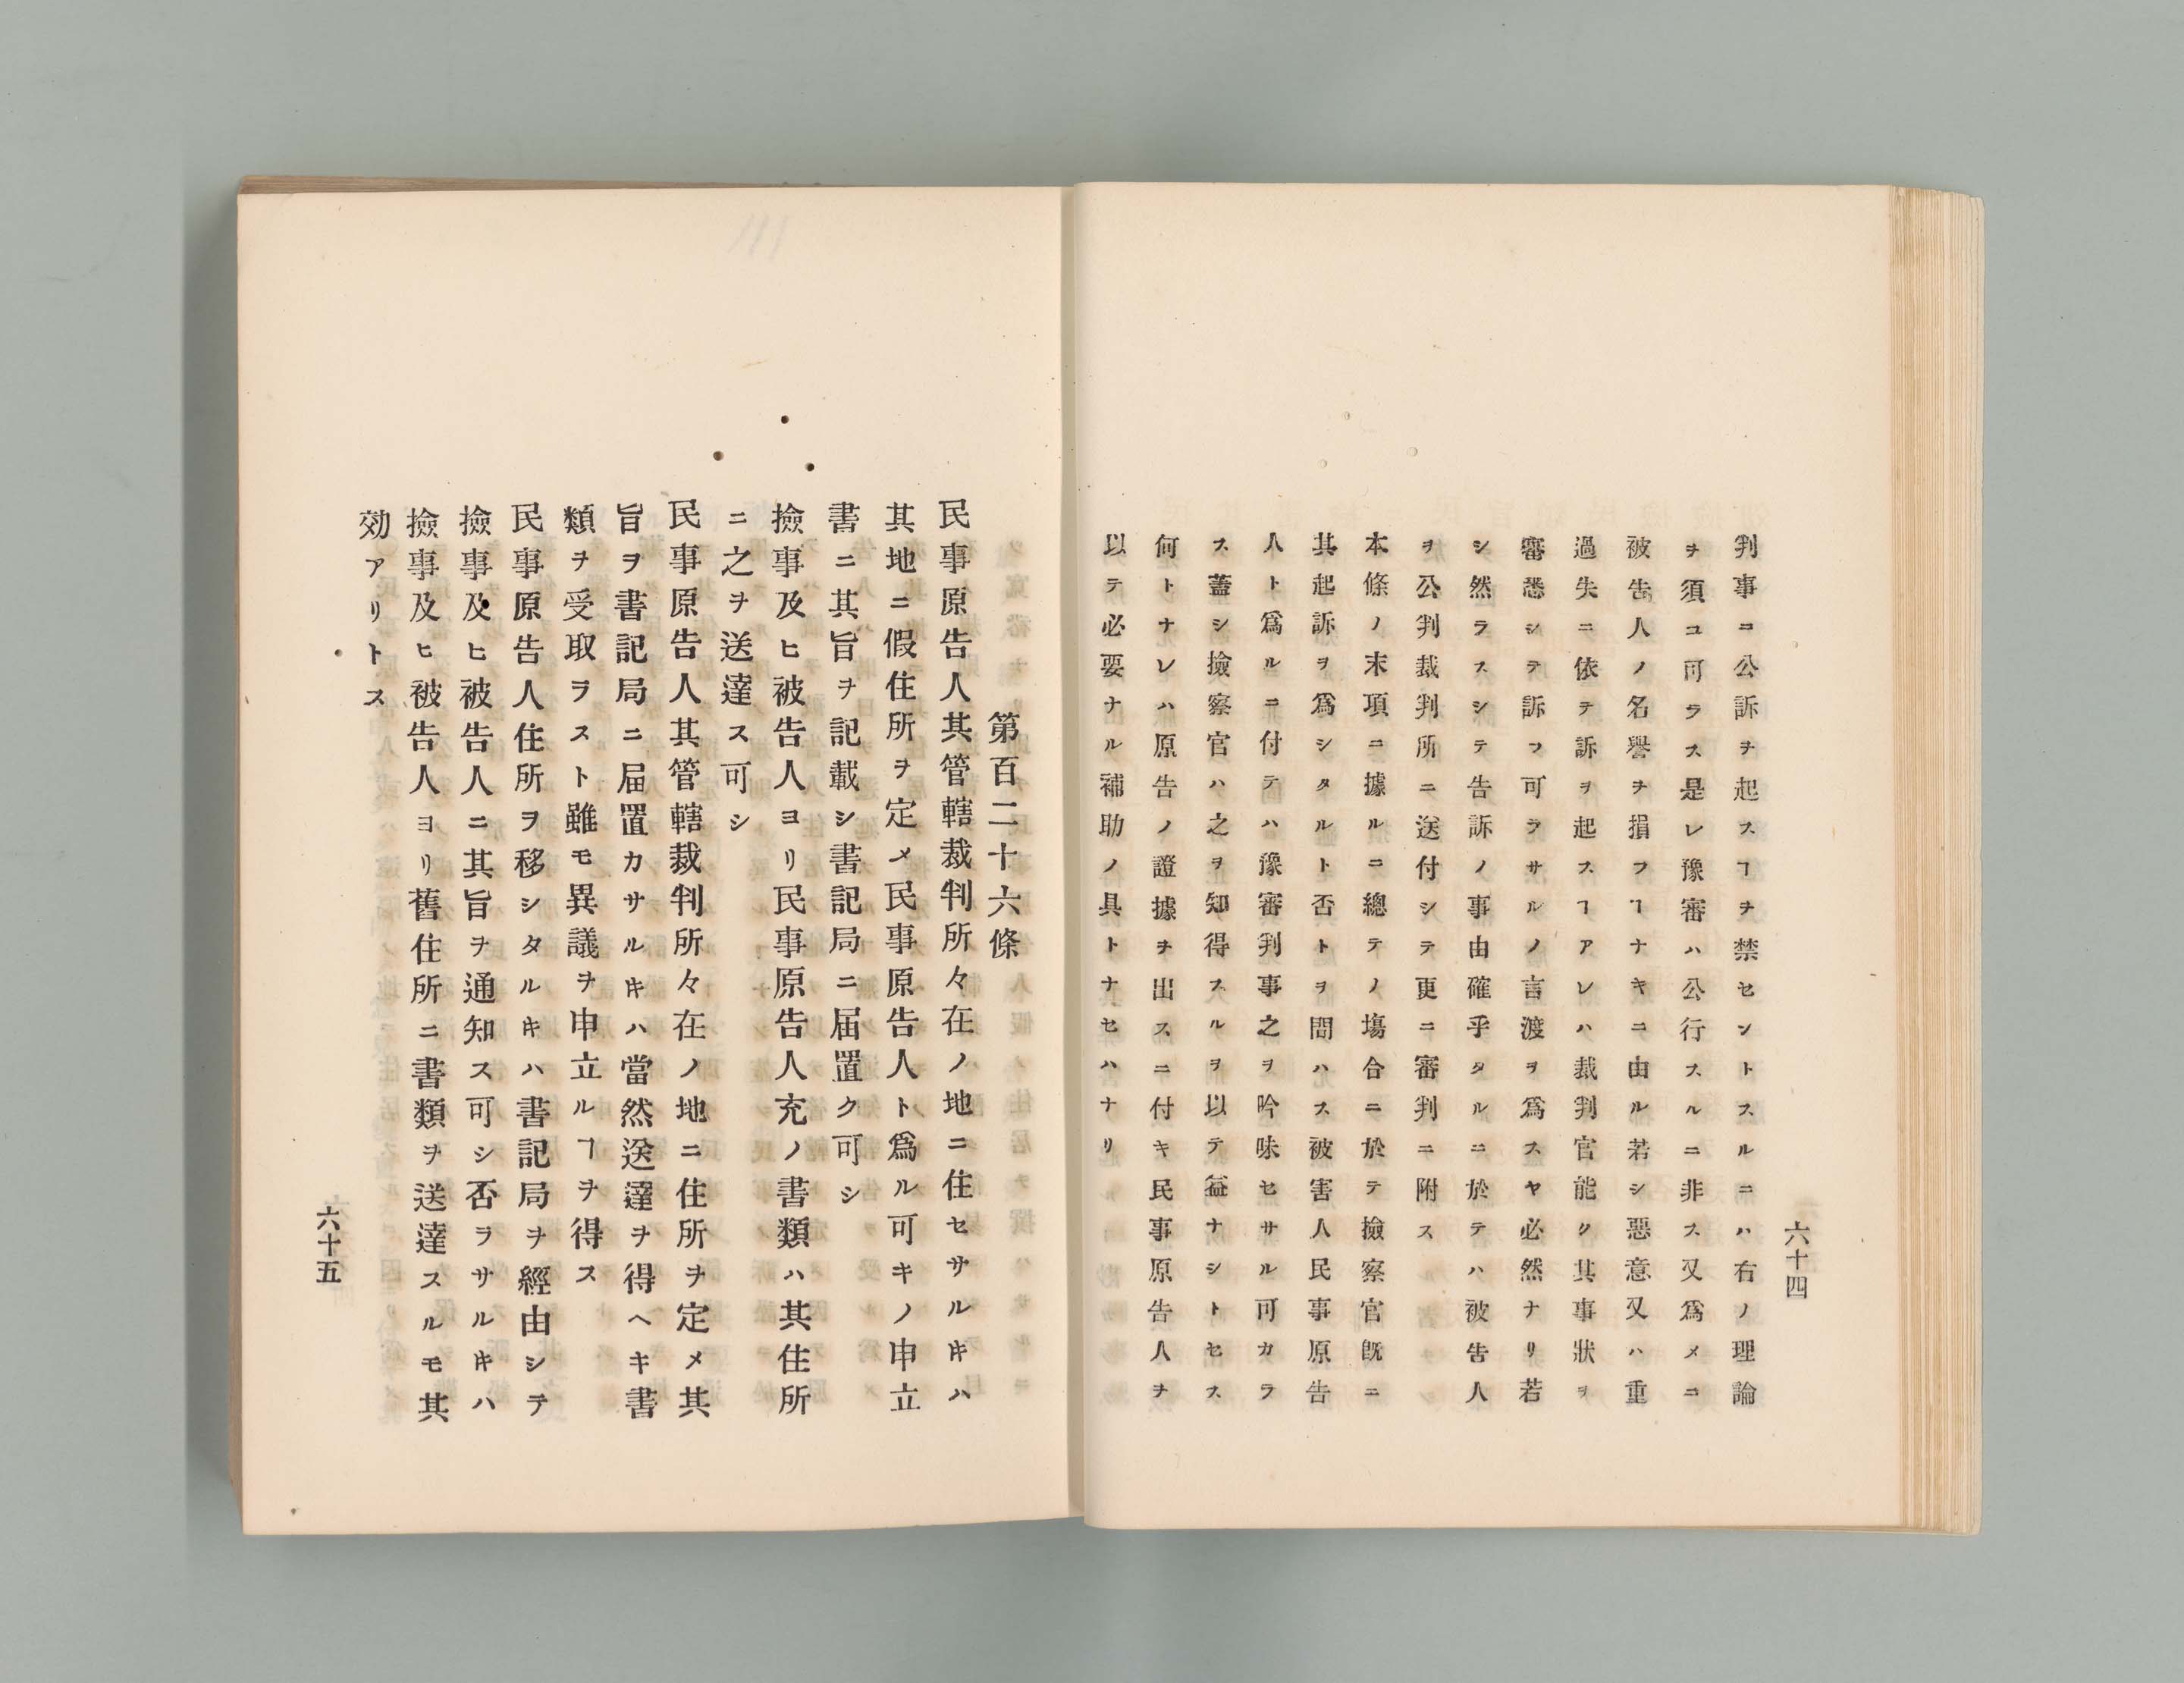 六十四
判事ニ公訴ヲ起スヿヲ禁セントスルニハ右ノ理論
ヲ須ユ可ラス是レ豫審ハ公行スルニ非ス又爲メニ
被告人ノ名譽ヲ損フヿナキニ由ル若シ惡意又ハ重
過失ニ依テ訴ヲ起スヿアレハ裁判官能ク其事狀ヲ
審悉シテ訴フ可ラサルノ言渡ヲ爲スヤ必然ナリ若
シ然ラスシテ告訴ノ事由確乎タルニ於テハ被告人
ヲ公判裁判所ニ送付シテ更ニ審判ニ附ス
本條ノ末項ニ據ルニ總テノ塲合ニ於テ撿察官既ニ
其起訴ヲ爲シタルト否トヲ問ハス被害人民事原告
人ト爲ルニ付テハ豫審判事之ヲ吟味セサル可カラ
ス蓋シ撿察官ハ之ヲ知得スルヲ以テ益ナシトセス
何トナレハ原告ノ證據ヲ出スニ付キ民事原告人ヲ
以テ必要ナル補助ノ具トナセハナリ
第百二十六條
民事原告人其管轄裁判所々在ノ地ニ住セサルキハ
其地ニ假住所ヲ定メ民事原告人ト爲ル可キノ申立
書ニ其旨ヲ記載シ書記局ニ届置ク可シ
撿事及ヒ被告人ヨリ民事原告人充ノ書類ハ其住所
ニ之ヲ送達ス可シ
民事原告人其管轄裁判所々在ノ地ニ住所ヲ定メ其
旨ヲ書記局ニ届置カサルキハ當然送達ヲ得ヘキ書
類ヲ受取ラスト雖モ異議ヲ申立ルヿヲ得ス
民事原告人住所ヲ移シタルキハ書記局ヲ經由シテ
撿事及ヒ被告人ニ其旨ヲ通知ス可シ否ラサルキハ
撿事及ヒ被告人ヨリ舊住所ニ書類ヲ送達スルモ其
効アリトス
六十五